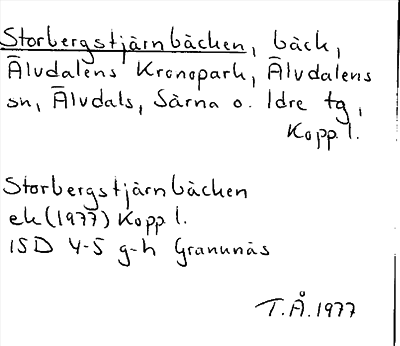 Storbergstjärnbäcken, bäck,
Älvdalens Kronopark, Älvdalens
sn, Älvdals, Särna o. Idre tg,
Kopp l.
Storbergstjärnbäcken
ek (1977) Kopp l.
15D 4-5 g-h Granunäs
T.Å. 1977